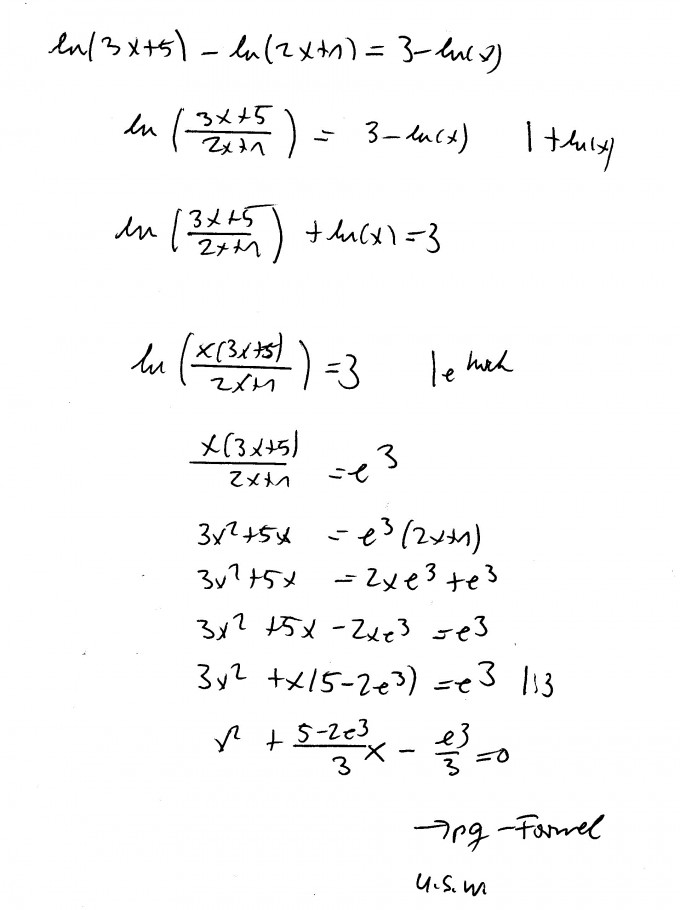 ln(3x+5) - ln(2x+1) = 3-ln(x)
ln (3x+5 / 2x+1) = 3-ln(x) | +ln(x)
ln (3x+5 / 2x+1) + ln(x) = 3
ln (x(3x+5) / 2x+1) = 3 | e hoch
x(3x+5) / 2x+1 = e³
3x²+5x = e³(2x+1)
3x²+5x = 2xe³+e³
3x²+5x-2xe³ = e³
3x²+x(5-2e³) = e³ |:3
x² + 5-2e³/3 x - e³/3 = 0
→ pq-Formel
u.s.w